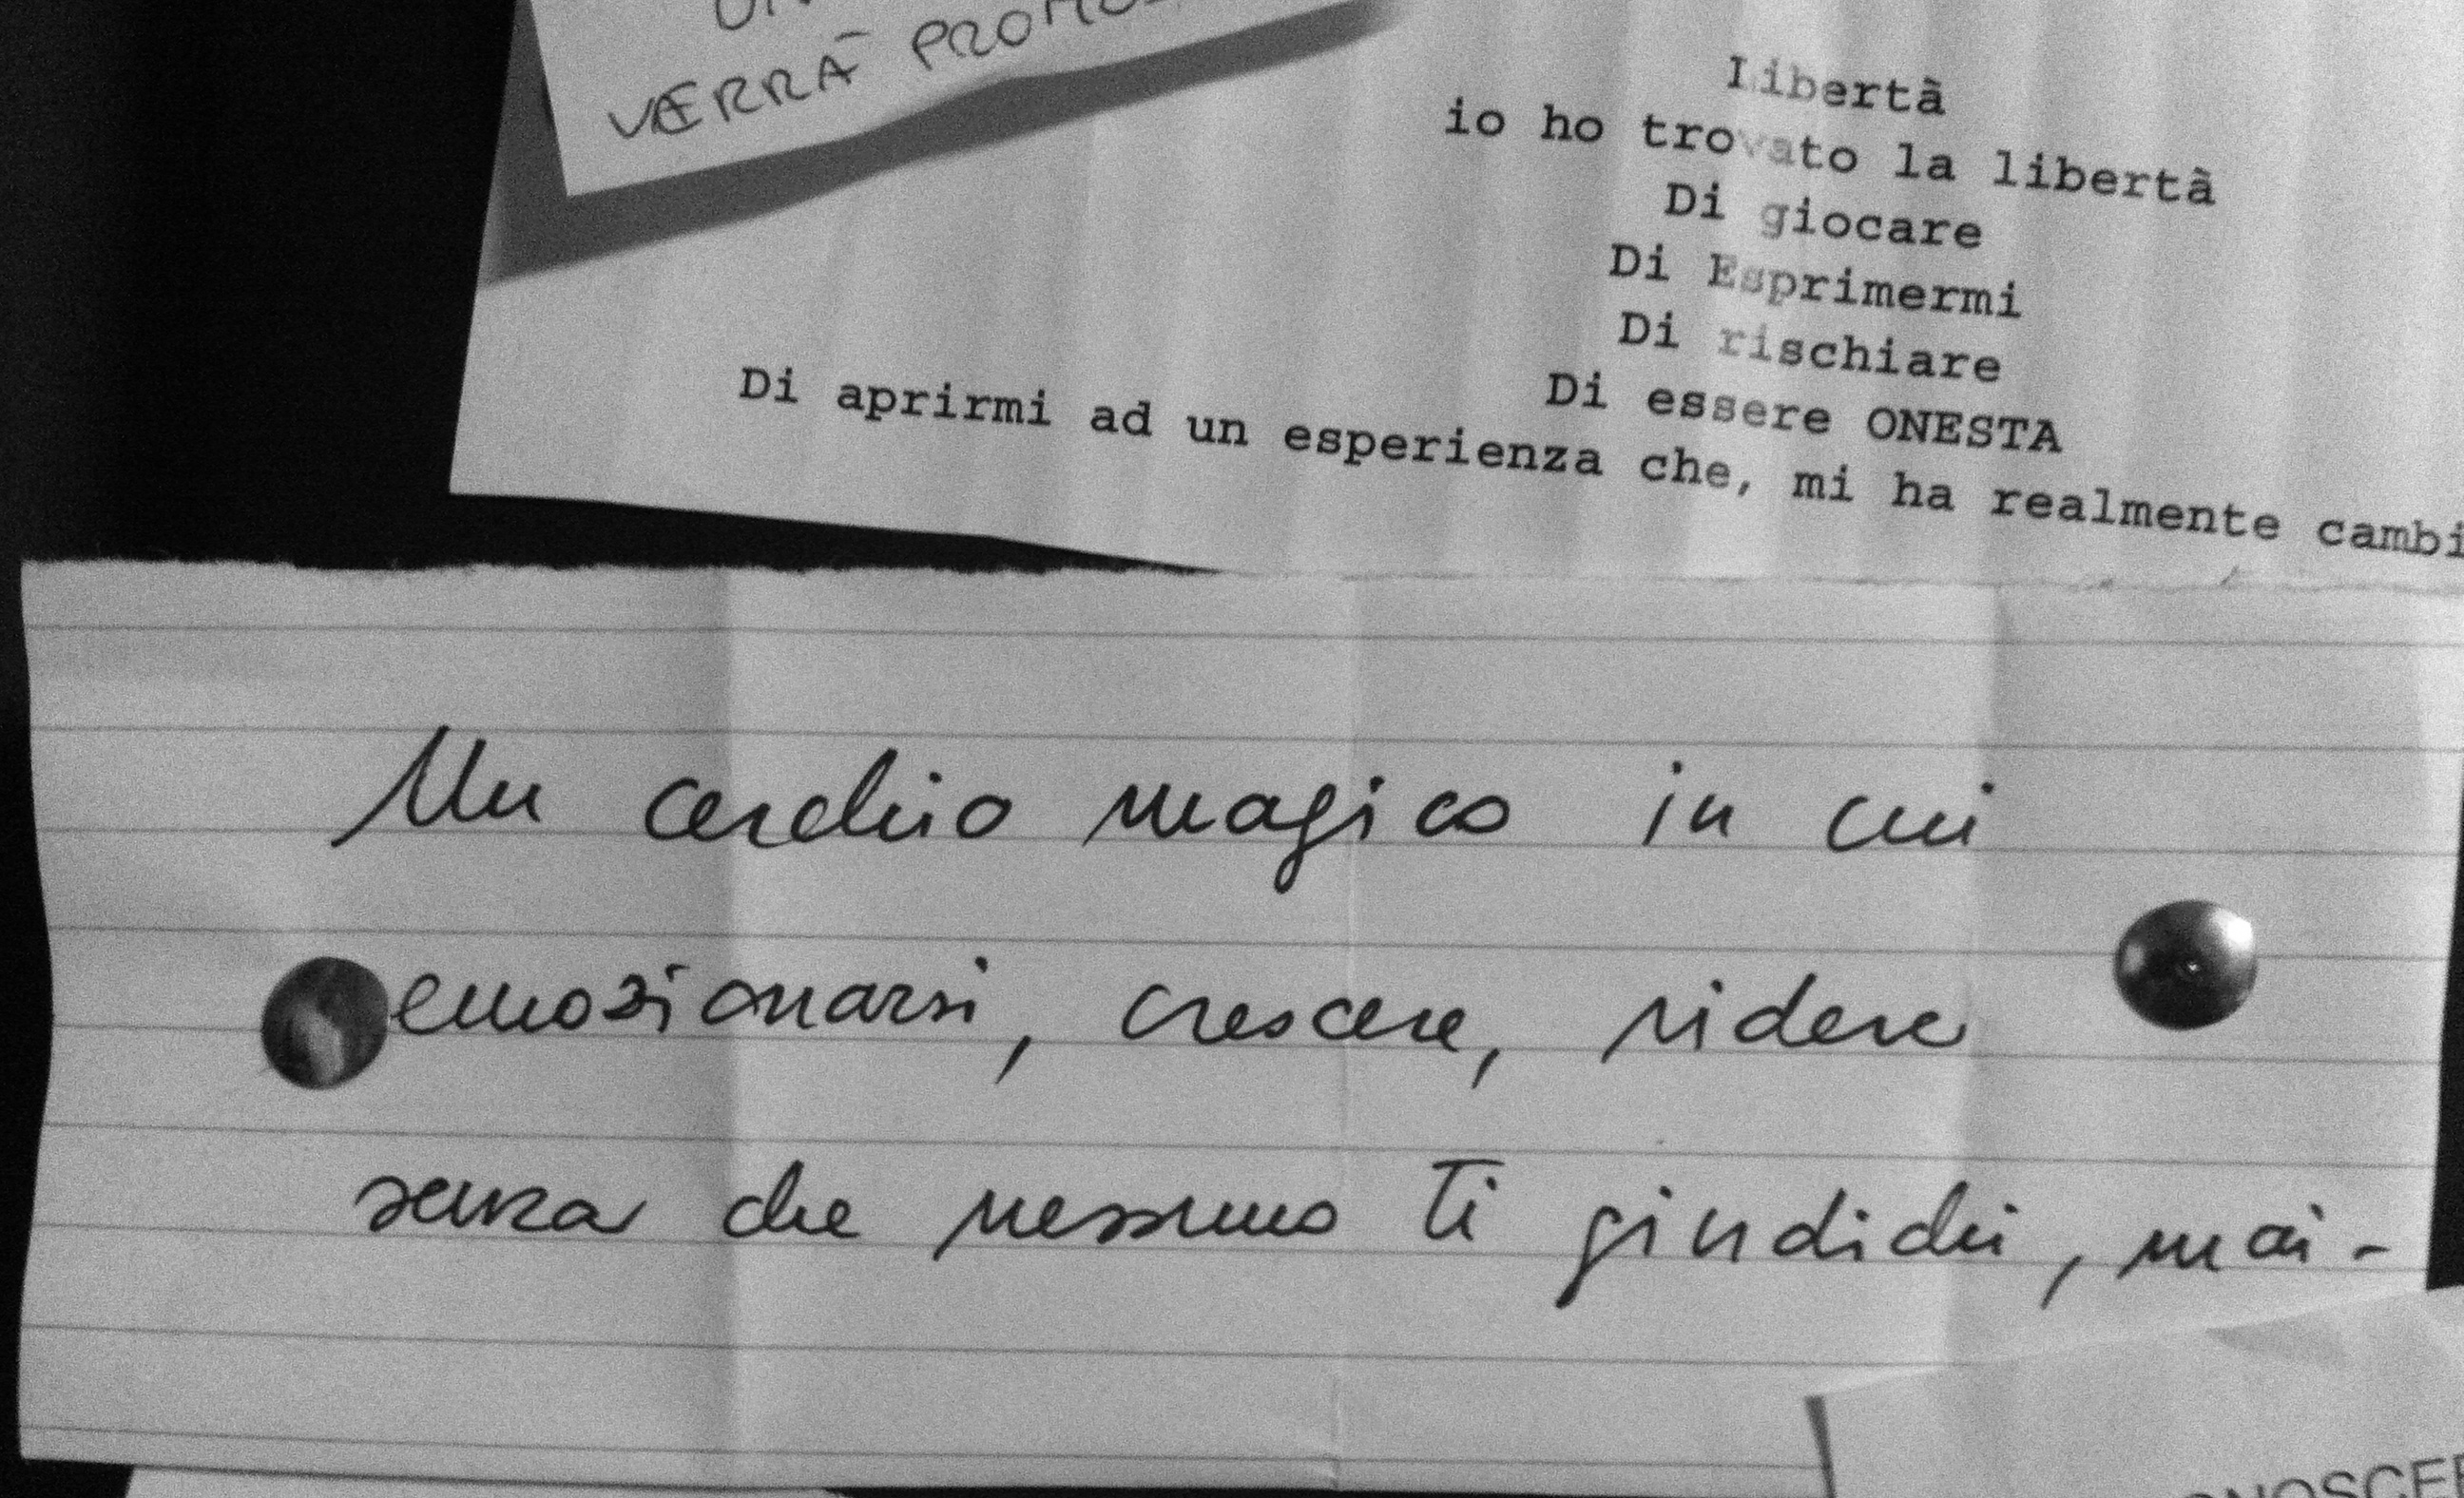 VERRÀ
Libertà
io ho trovato la libertà
Di giocare
Di Esprimermi
Di rischiare
Di essere ONESTA
Di aprirmi ad un esperienza che, mi ha realmente cambi
Un cerchio magico in cui
emozionarsi, crescere, ridere
senza che nessuno ti giudichi, mai-